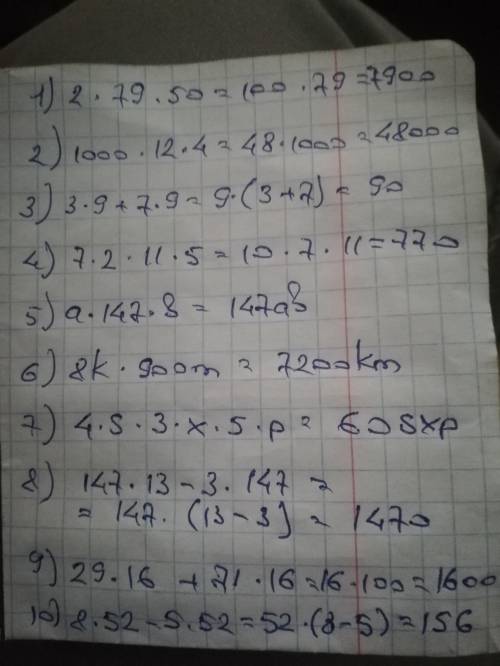 1) 2 · 79 · 50 = 100 · 79 = 7900
2) 1000 · 12 · 4 = 48 · 1000 = 48000
3) 3 · 9 + 7 · 9 = 9 · (3 + 7) = 90
4) 7 · 2 · 11 · 5 = 10 · 7 · 11 = 770
5) a · 147 · 8 = 147a8
6) 8k · 900m = 7200km
7) 4 · s · 3 · x · 5 · p = 60sxp
8) 147 · 13 - 3 · 147 =
= 147 · (13 - 3) = 1470
9) 29 · 16 + 71 · 16 = 16 · 100 = 1600
10) 8 · 52 - 5 · 52 = 52 · (8 - 5) = 156